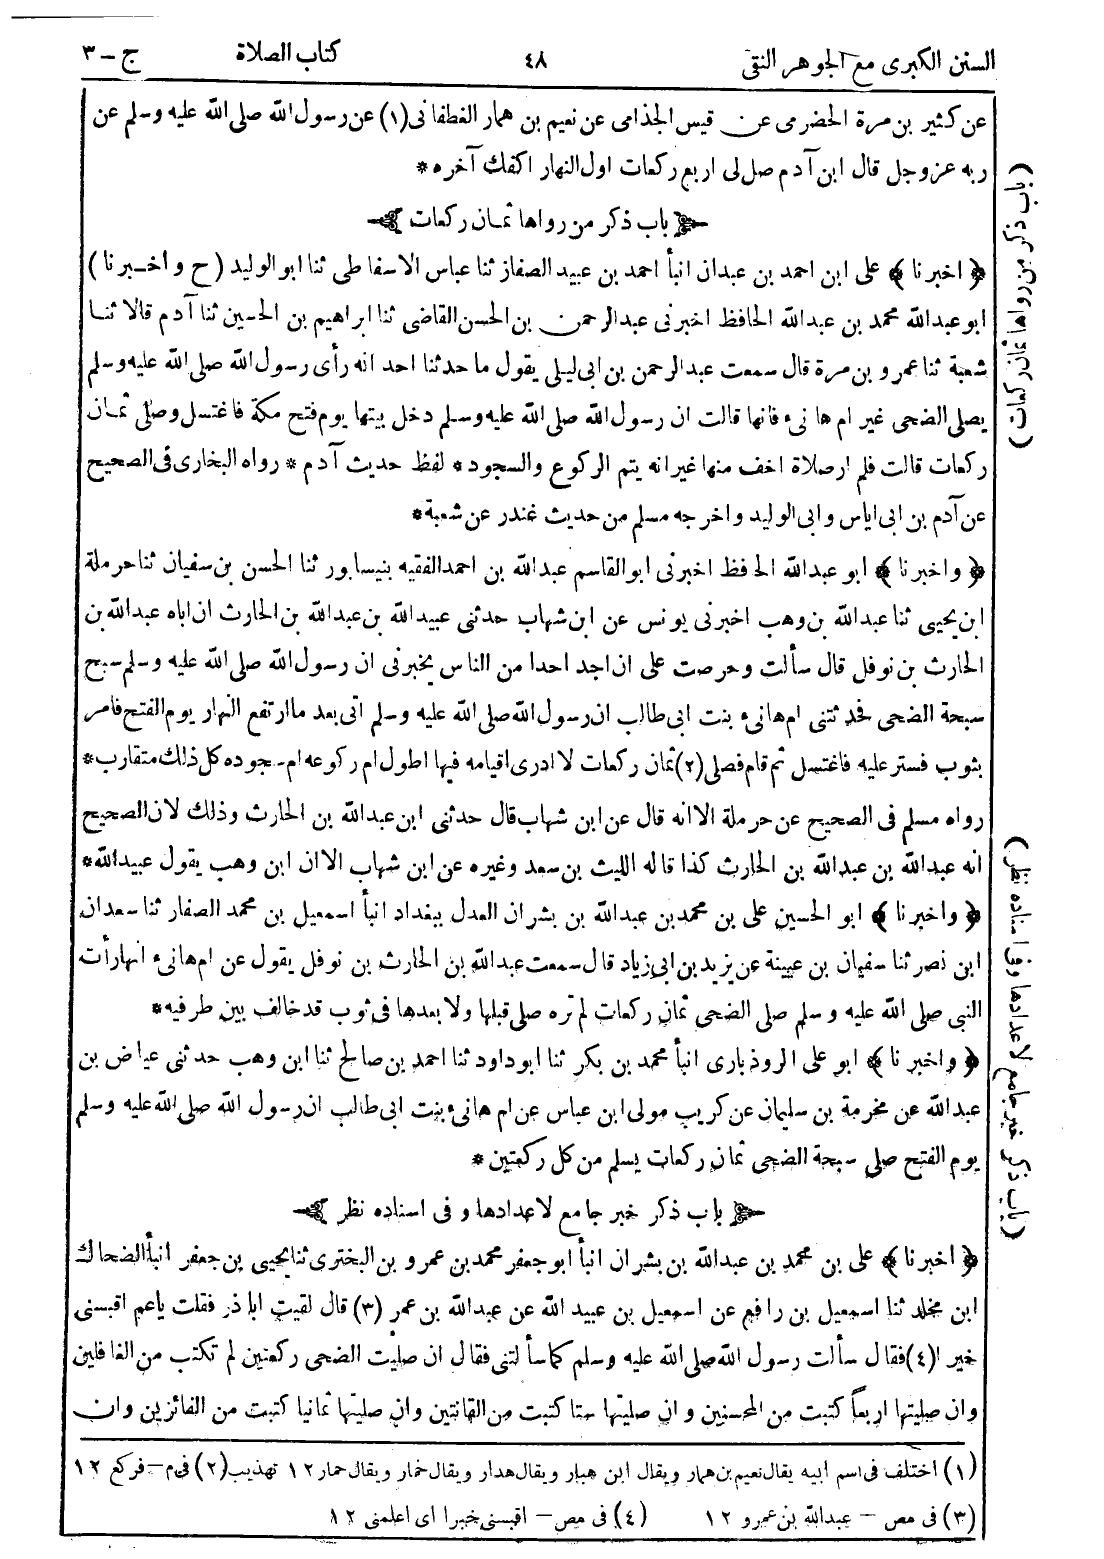 السنن الكبرى مع الجوهر النقى ٤٨ كتاب الصلاة ج – ٣
عن كثير بن مرة الحضرمى عن قيس الجذامى عن نعيم بن همار الغطفانى (١) عن رسول الله صلى الله عليه وسلم عن
ربه عزوجل قال ابن آدم صل لى اربع ركعات اول النهار اكفك آخره *
باب ذكر من رواها ثمان ركعات
﴿ اخبرنا ﴾ على ابن احمد بن عبدان انبأ احمد بن عبيد الصفار ثنا عباس الاسفاطى ثنا ابو الوليد ( ح و اخبرنا )
ابو عبدالله محمد بن عبدالله الحافظ اخبرنى عبدالرحمن بن الحسن القاضى ثنا ابراهيم بن الحسين ثنا آدم قالا ثنا
شعبة ثنا عمرو بن مرة قال سمعت عبدالرحمن بن ابى ليلى يقول ما حدثنا احد انه رأى رسول الله صلى الله عليه وسلم
يصلى الضحى غير ام هانىء فانها قالت ان رسول الله صلى الله عليه وسلم دخل بيتها يوم فتح مكة فاغتسل وصلى ثمان
ركعات قالت فلم ار صلاة اخف منها غير انه يتم الركوع والسجود * لفظ حديث آدم * رواه البخارى فى الصحيح
عن آدم بن ابى اياس وابى الوليد واخرجه مسلم من حديث غندر عن شعبة *
﴿ واخبرنا ﴾ ابو عبدالله الحافظ اخبرنى ابو القاسم عبدالله بن احمد الفقيه بنيسابور ثنا الحسن بن سفيان ثنا حرملة
ابن يحيى ثنا عبدالله بن وهب اخبرنى يونس عن ابن شهاب حدثنى عبيدالله بن عبدالله بن الحارث ان اباه عبدالله بن
الحارث بن نوفل قال سألت وحرصت على ان اجد احدا من الناس يخبرنى ان رسول الله صلى الله عليه وسلم سبح
سبحة الضحى فحدثتنى ام هانىء بنت ابى طالب ان رسول الله صلى الله عليه وسلم اتى بعد ما ارتفع النهار يوم الفتح فامر
بثوب فستر عليه فاغتسل ثم قام فصلى (٢) ثمان ركعات لا ادرى اقيامه فيها اطول ام ركوعه ام سجوده كل ذلك متقارب *
رواه مسلم فى الصحيح عن حرملة الا انه قال عن ابن شهاب قال حدثنى ابن عبدالله بن الحارث وذلك لان الصحيح
انه عبدالله بن عبدالله بن الحارث كذا قاله الليث بن سعد وغيره عن ابن شهاب الا ان ابن وهب يقول عبيدالله *
﴿ واخبرنا ﴾ ابو الحسين على بن محمد بن عبدالله بن بشران العدل ببغداد انبأ اسمعيل بن محمد الصفار ثنا سعدان
ابن نصر ثنا سفيان بن عيينة عن يزيد بن ابى زياد قال سمعت عبدالله بن الحارث بن نوفل يقول عن ام هانىء انها رأت
النبى صلى الله عليه وسلم صلى الضحى ثمان ركعات لم تره صلى قبلها ولا بعدها فى ثوب قد خالف بين طرفيه *
﴿ واخبرنا ﴾ ابو على الروذبارى انبأ محمد بن بكر ثنا ابو داود ثنا احمد بن صالح ثنا ابن وهب حدثنى عياض بن
عبدالله عن مخرمة بن سليمان عن كريب مولى ابن عباس عن ام هانىء بنت ابى طالب ان رسول الله صلى الله عليه وسلم
يوم الفتح صلى سبحة الضحى ثمان ركعات يسلم من كل ركعتين *
باب ذكر خبر جامع لاعدادها و فى اسناده نظر
﴿ اخبرنا ﴾ على بن محمد بن عبدالله بن بشران انبأ ابو جعفر محمد بن عمرو بن البخترى ثنا يحيى بن جعفر انبأ الضحاك
ابن مخلد ثنا اسمعيل بن رافع عن اسمعيل بن عبيد الله عن عبدالله بن عمر (٣) قال لقيت اباذر فقلت ياعم اقبسنى
خيرا (٤) فقال سألت رسول الله صلى الله عليه وسلم كما سألتنى فقال ان صليت الضحى ركعتين لم تكتب من الغافلين
وان صليتها اربعاً كتبت من المحسنين وان صليتها ستا كتبت من القانتين وان صليتها ثمانيا كتبت من الفائزين وان
(١) اختلف فى اسم ابيه يقال نعيم بن همار ويقال ابن هبار ويقال هدار ويقال خمار ويقال حمار ١٢ تهذيب (٢) فى م – فركع ١٢
(٣) فى مص – عبدالله بن عمرو ١٢ (٤) فى مص – اقبسنى خيرا اى اعلمنى ١٢
(باب ذكر من رواها ثمان ركعات)
(باب ذكر خبر جامع لاعدادها وفى اسناده نظر)